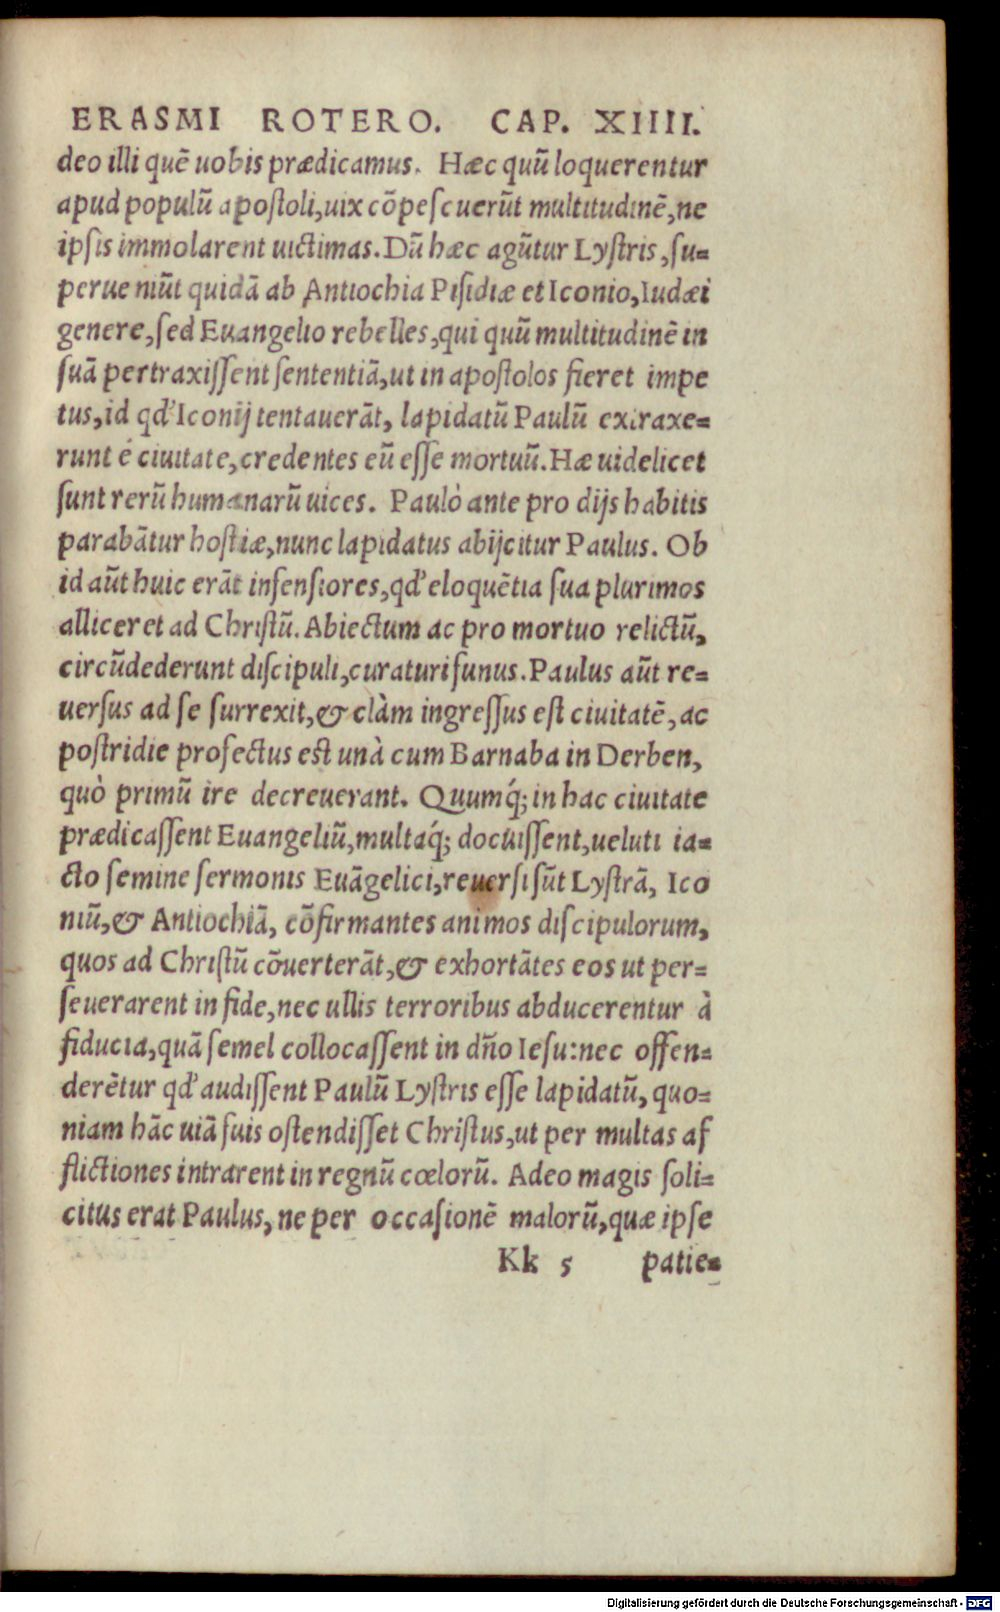 ERASMI ROTERO. CAP. XIIII.
deo illi quē uobis prædicamus. Hæc quū loquerentur
apud populū apostoli, uix cōpescuerūt multitudinē, ne
ipsis immolarent uictimas. Dū hæc agūtur Lystris, su=
perueniūt quidā ab Antiochia Pisidiæ et Iconio, Iudæi
genere, sed Euangelio rebelles, qui quū multitudinē in
suā pertraxissent sententiā, ut in apostolos fieret impe
tus, id qd' Iconij tentauerāt, lapidatū Paulū extraxe=
runt é ciuitate, credentes eū esse mortuū. Hæ uidelicet
sunt rerū humanarū uices. Paulò ante pro dijs habitis
parabātur hostiæ, nunc lapidatus abijcitur Paulus. Ob
id aūt huic erāt infensiores, qd' eloquētia sua plurimos
alliceret ad Christū. Abiectum ac pro mortuo relictū,
circūdederunt discipuli, curaturi funus. Paulus aūt re=
uersus ad se surrexit, & clàm ingressus est ciuitatē, ac
postridie profectus est unà cum Barnaba in Derben,
quò primū ire decreuerant. Quumq́; in hac ciuitate
prædicassent Euangeliū, multaq́; docuissent, ueluti ia=
cto semine sermonis Euāgelici, reuersi sūt Lystrā, Ico
niū, & Antiochiā, cōfirmantes animos discipulorum,
quos ad Christū cōuerterāt, & exhortātes eos ut per=
seuerarent in fide, nec ullis terroribus abducerentur à
fiducia, quā semel collocassent in dño Iesu: nec offen=
derētur qd' audissent Paulū Lystris esse lapidatū, quo=
niam hāc uiā suis ostendisset Christus, ut per multas af
flictiones intrarent in regnū cœlorū. Adeo magis soli=
citus erat Paulus, ne per occasionē malorū, quæ ipse
Kk 5 patie=
Digitalisierung gefördert durch die Deutsche Forschungsgemeinschaft - DFG